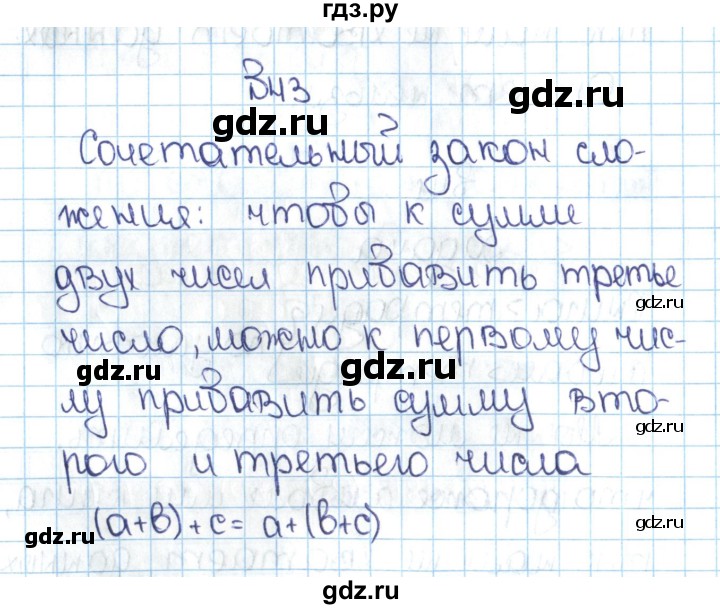 гдз.ру
В43
gdz.ru
gdz.ru
Сочетательный закон сло-
жения: чтобы к сумме
gdz.ru
двух чисел прибавить третье
gdz.ru
число, можно к первому чис-
gdz.ru
gdz.ru
лу прибавить сумму вто-
gdz.ru
рого и третьего числа
(a+b)+c= a+(b+c)
gdz.ru
gdz.ru
gdz.ru